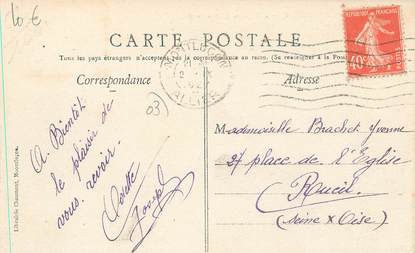 10 €
CARTE POSTALE
Tous les pays étrangers n'acceptent pas la correspondance au recto. (Se renseigner à la Poste)
RÉPUBLIQUE FRANÇAISE
40c
MONTLUÇON
ALLIER
Correspondance
Adresse
03
A Bientôt
le plaisir de
vous revoir.
Odette
Joseph
Mademoiselle Brachet Yvonne
27 place de l'Eglise
Rueil
(Seine & Oise)
Librairie Chaumont,